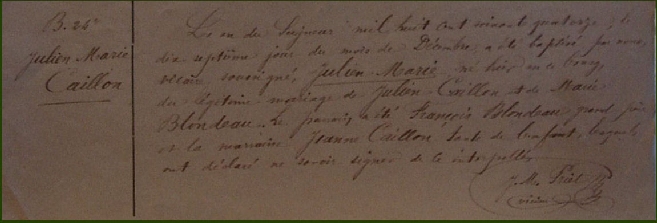 B. 25e
Julien Marie
Caillon
L'an du Seigneur mil huit cent soixante quatorze, le
dix septième jour du mois de Décembre, a été baptisé par nous,
vicaire soussigné, Julien Marie, né hier en ce bourg,
du légitime mariage de Julien Caillon et de Marie
Blondeau. Le parrain a été François Blondeau grand père
et la marraine Jeanne Caillon, tante de l'enfant, lesquels
ont déclaré ne savoir signer de ce interpellés
J. M.
vicaire